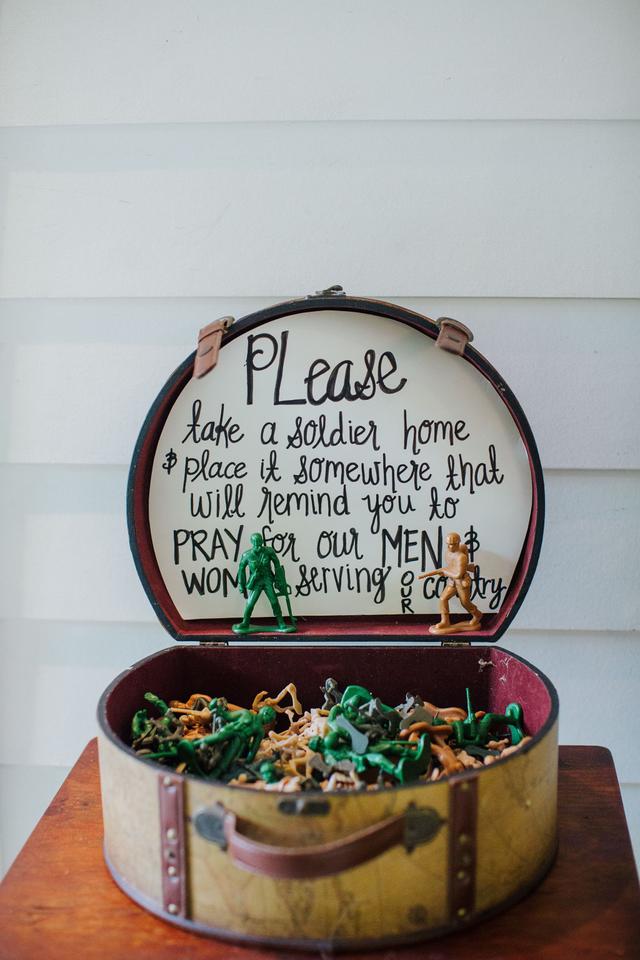 PLease
take a soldier home
$ place it somewhere that
will remind you to
PRAY for our MEN $
serving OUR